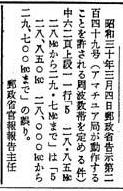 昭和三十年三月四日郵政省告示第二
百四十九号(アマチュア局が動作する
ことを許される周波数帯を定める件)
中六二頁上段一行「5 二八・八五Mc
二八Mcから二九・七Mcまで」は「5
二八、八五〇kc 二八、〇〇〇kcから
二九、七〇〇kcまで」の誤り。
郵政省官報報告主任